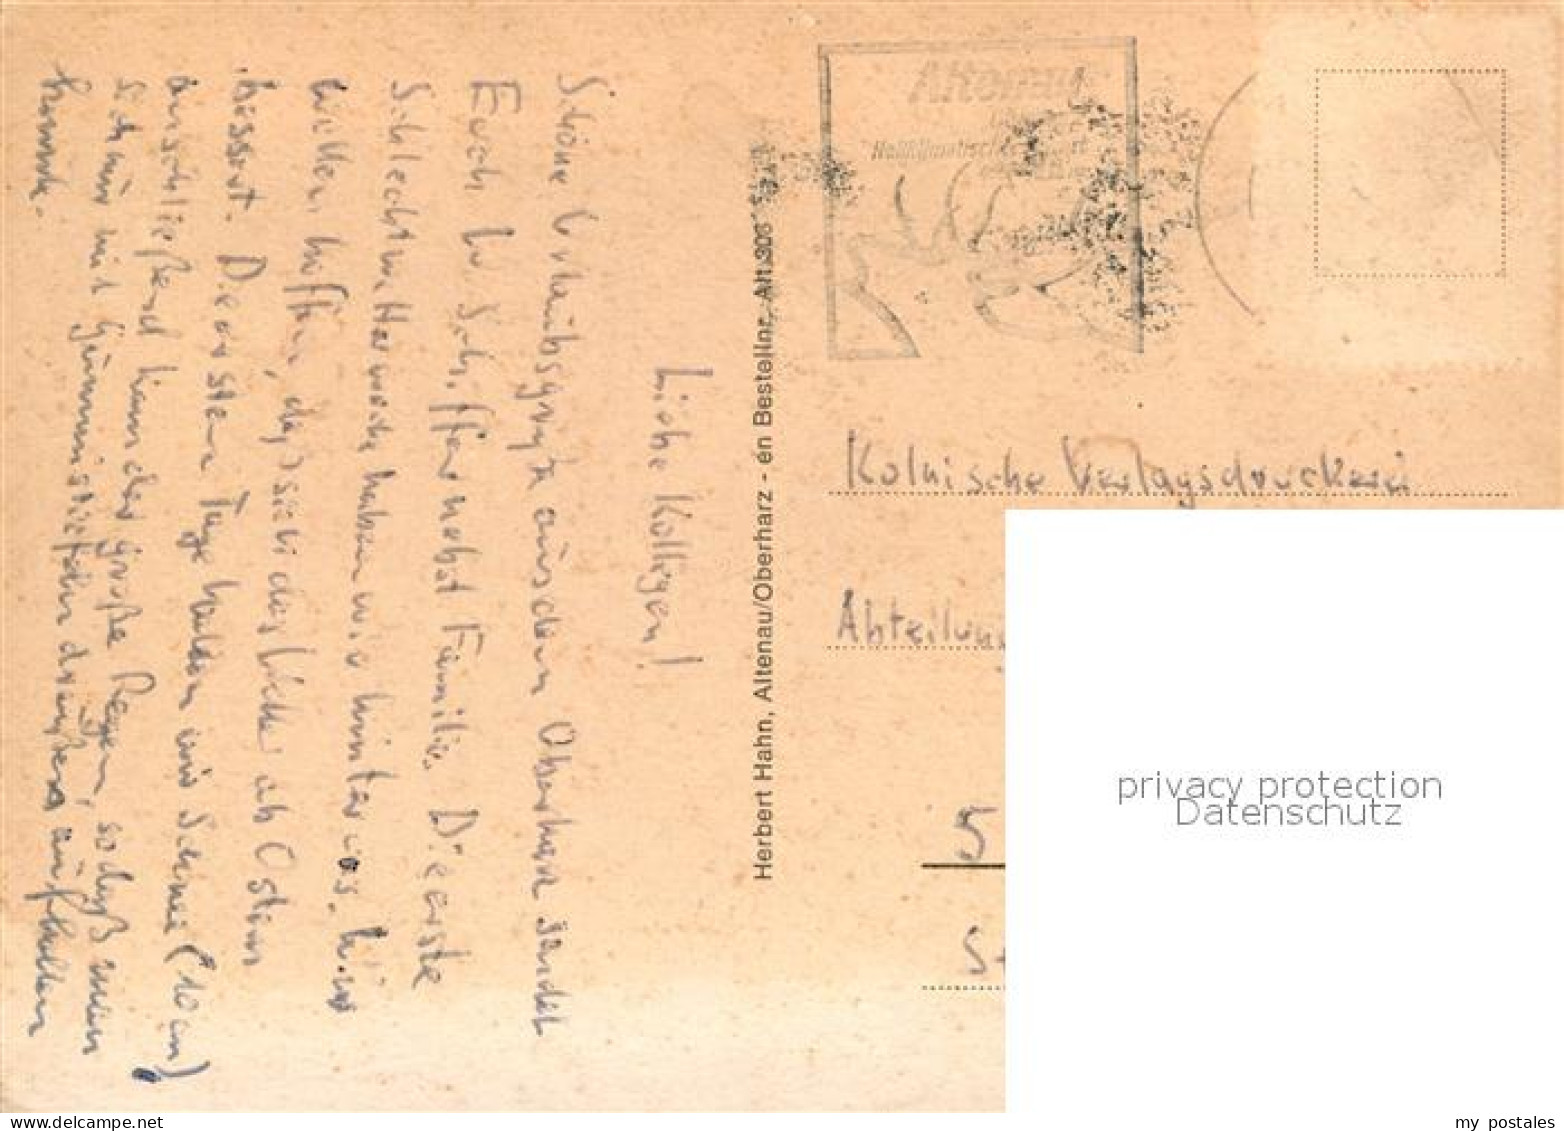 Liebe Kollegen!
Schöne Urlaubsgrüße aus dem Oberharz sendet
Euch W. Schiffer nebst Familie. Die erste
Schlechtwetterwoche haben wir hinter uns. Wir
wollen hoffen, daß sich das Wetter ab Ostern
bessert. Die ersten Tage hatten wir Schnee (10 cm)
anschließend kam der große Regen, sodaß man
sich nur mit Gummistiefeln draußen aufhalten
konnte.
Herbert Hahn, Altenau/Oberharz - en Bestellnr. Alt 306
Altenau
Heilklimatischer
Kölnische Verlagsdruckerei
Abteilung
5
privacy protection
Datenschutz
my postales